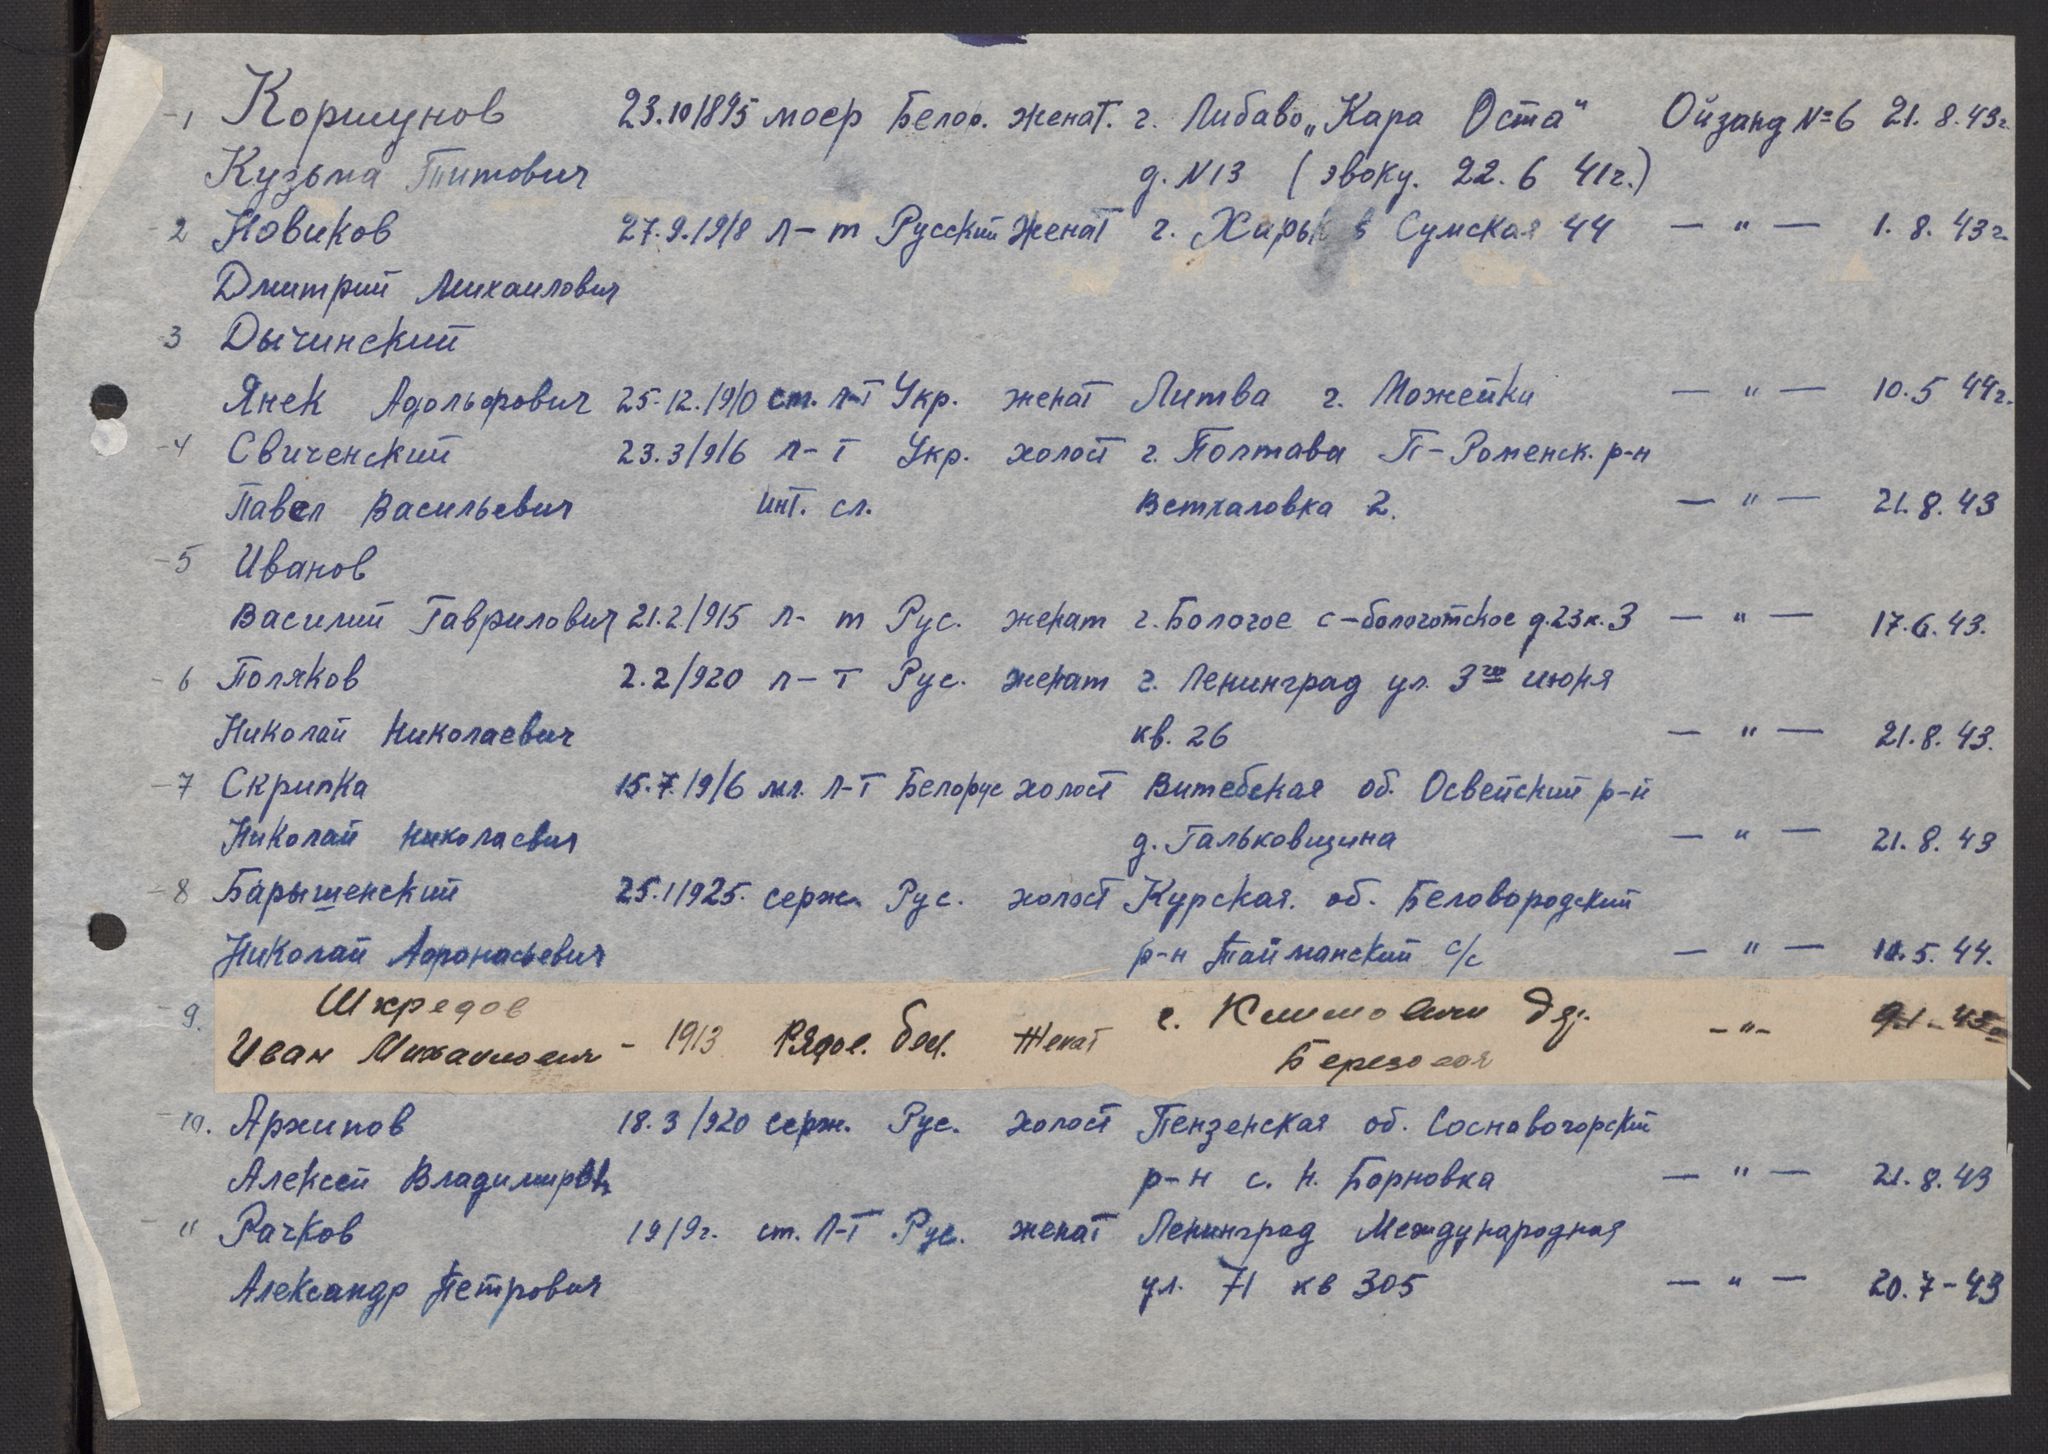 1 Коршунов 23.10 1895 моер Белор. женат. г. Либаво „Кара Оста" Ойзанд №6 21. 8. 43г.
Кузьма Титович д. N13 (эваку. 22. 6 41г.)
2 Новиков 27.9.1918 л-т Русский женат г. Харьков Сумская 44 — " — 1. 8. 43г.
Дмитрий Михаилович
3 Дычинский
Янек Адольфович 25.12.1910 ст. л-т Укр. женат Литва г. Можейки — " — 10. 5 44г.
4 Свиченский 23.3/916 л-т Укр. холост г. Полтава П-Роменск. р-н
Павел Васильевич инт. сл. Ветхаловка 2. — " — 21. 8. 43
5 Иванов
Василий Гаврилович 21.2/915 л-т Рус. женат г. Бологое с-бологотское д.23к.3 — " — 17. 6. 43.
6 Поляков 2.2/920 л-т Рус. женат г. Ленинград ул. 3го июня
Николай Николаевич кв. 26 — " — 21. 8. 43.
7 Скрипка 15.7.1916 мл. л-т Белорус холост Витебская об. Освейский р-й
Николай Николаевич д. Гальковщина — " — 21. 8. 43
8 Барышенский 25.1 1925. серж. Рус. холост Курская. об. Беловородский
Николай Афонасьевич р-н Тайманский с/с — " — 10. 5. 44.
9. Шкредов
Иван Михаилович - 1913 Рядов. бел. Женат г. Климовичи дер. -"-
Березовая
10. Архипов 18.3/920 серж. Рус. холост Пензенская об. Сосновогорский
Алексей Владимирович р-н с. Н. Борновка — " — 21. 8. 43
11 Рачков 1919г. ст. л-т Рус. женат Ленинград Международная
Александр Петрович ул. 71 кв 305 — " — 20. 7-43